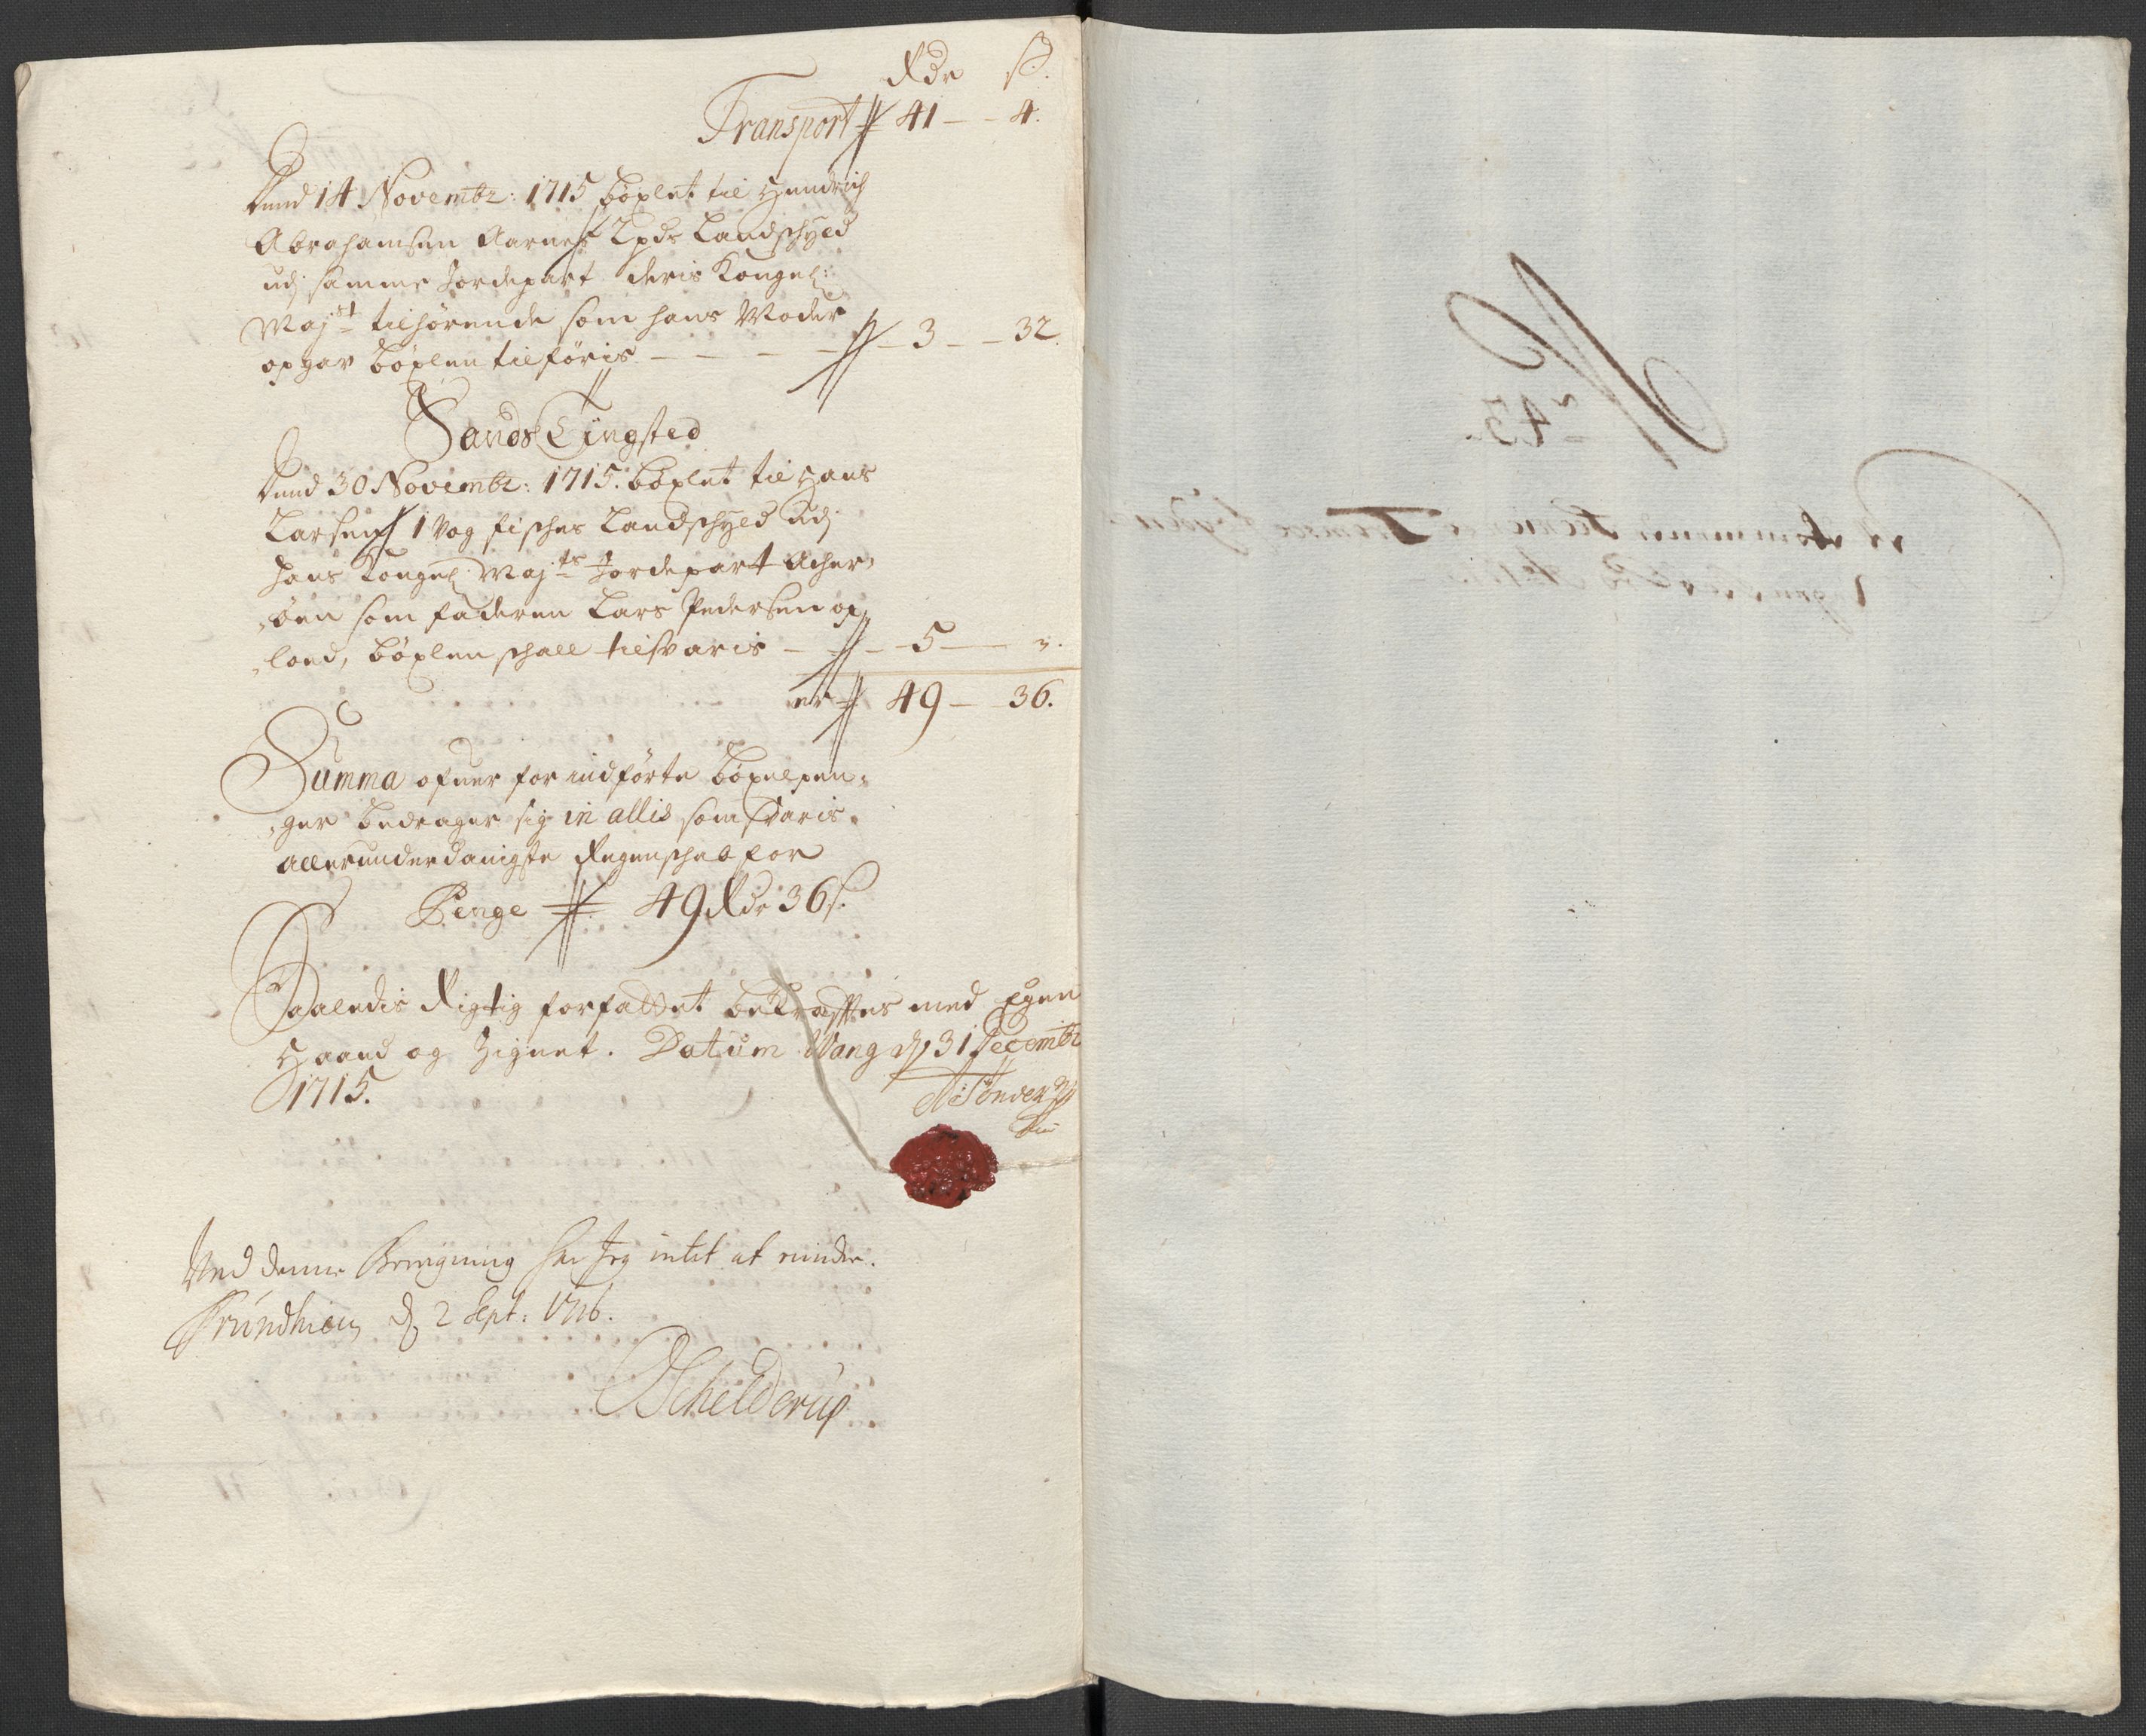 Rdr ß.
Transport 41 — 4.
Dend 14 Novembr: 1715 böxlet til Hendrich
Abrahamsen Aarnes Lpds Landschyld
udj samme Jordepart deris Kongel:
Maj:st tilhørende som hans Moder
opgav böxlen tilføris — — — — 3 — 32.
Sands Tingsted
Dend 30 Novembr: 1715. böxlet til Hans
Larsen 1 Vog fisches Landschyld udj
hans Kongel: Maj:ts Jordepart Acher,
,öen som faderen Lars Pedersen op,
,loed, böxlen schall tilsvaris — — 5 —
er 49 — 36.
Summa ofuer for indförte böxelpen,
,ger bedrager sig in allis som svaris
allerunderdanigste Regenschab for
Penge 49 Rdr 36 ß.
Saaledis Rigtig forfattet bekræfftes med Egen
Haand og Zignet. Datum Wang d. 31 Decembr
1715.
Tönder
Ved denne Beregning har Jeg intet at minde.
Trundhiem d. 2 Sept: 1716.
Schelderup
No 43.